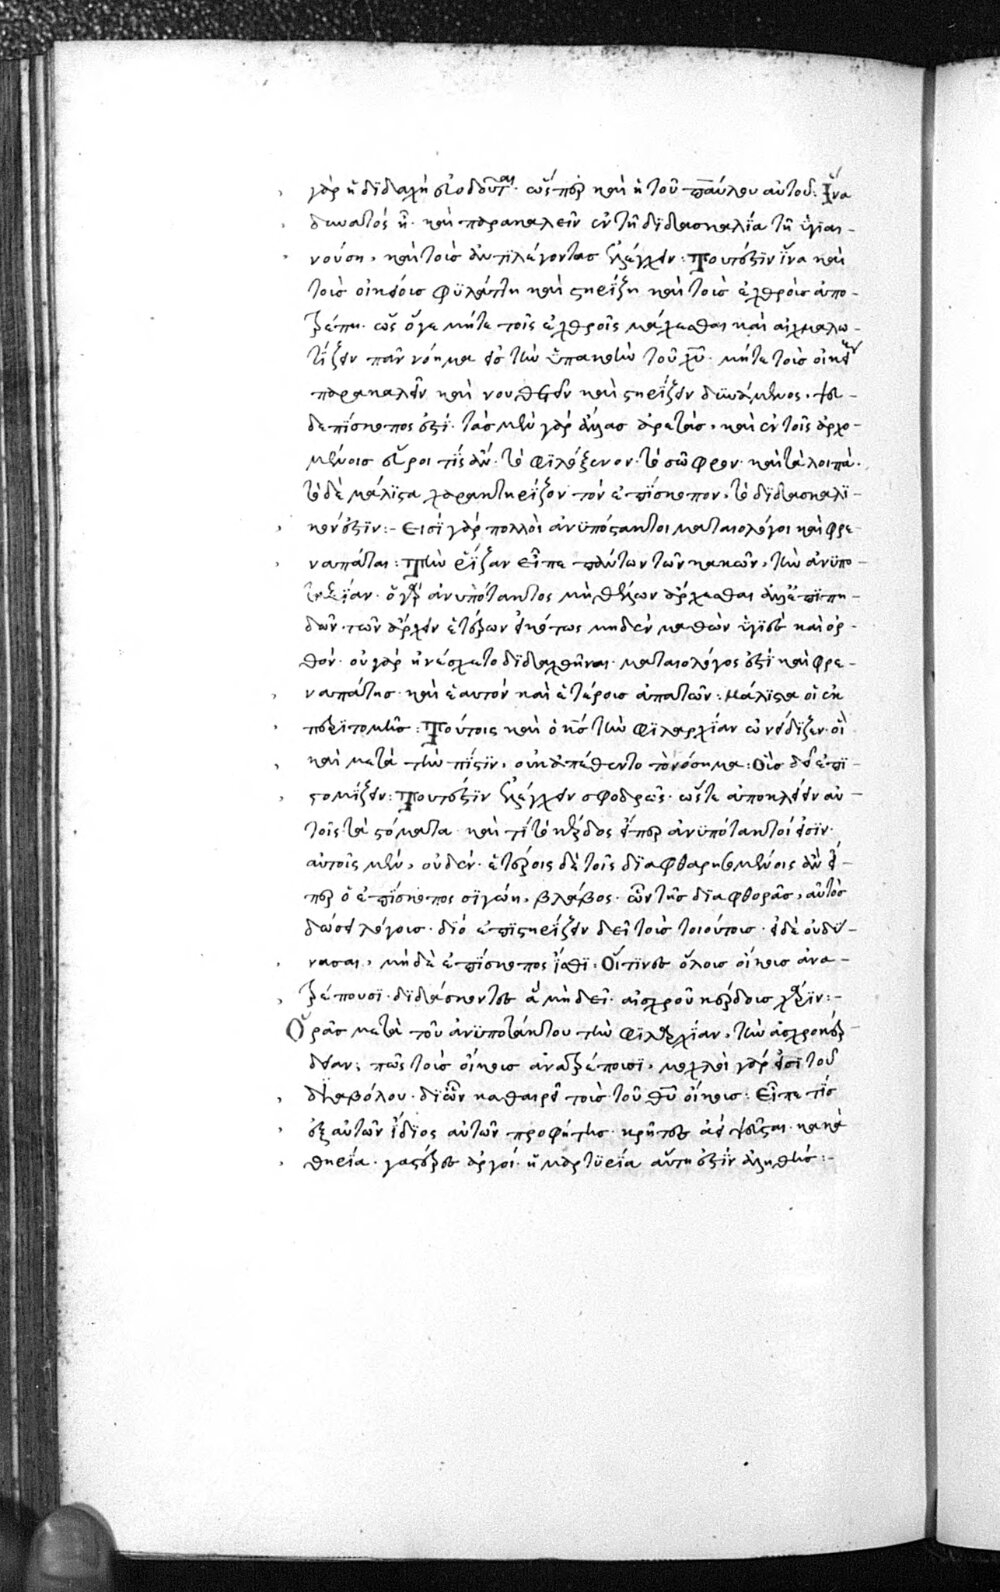 γὰρ ἡ διδαχὴ ὥσπερ καὶ ἡ τοῦ παύλου αὐτοῦ: Ἵνα
δυνατὸς ᾖ· καὶ παρακαλεῖν ἐν τῇ διδασκαλία τῇ ὑγιαι-
νούση, καὶ τοὺς ἀντιλέγοντας ἐλέγχειν: Τουτέστιν ἵνα καὶ
τοὺς οἰκείους φυλάττη καὶ στηρίζη καὶ τοὺς ἐχθροὺς ἀπο-
τρέπη· ὡς ὅγε μήτε τοῖς ἐχθροῖς μάχεσθαι καὶ αἰχμαλω-
τίζειν πᾶν νόημα εἰς τὴν ὑπακοὴν τοῦ χυ· μήτε τοὺς οἰκείους
παρακαλεῖν καὶ νουθετεῖν καὶ στηρίζειν δυνάμενος, ψευ-
δεπίσκοπος ἐστί· τὰς μὲν γὰρ ἄλλας ἀρετὰς, καὶ ἐν τοῖς ἀρχο-
μένοις εὕροι τίς ἂν· τὸ φιλόξενον· τὸ σῶφρον· καὶ τὰ λοιπά·
τὸ δὲ μάλιστα χαρακτηρίζον τὸν ἐπίσκοπον, τὸ διδασκαλι-
κόν ἐστιν:- Εἰσὶ γὰρ πολλοὶ ἀνυπότακτοι ματαιολόγοι καὶ φρε-
ναπάται: Τὴν ῥίζαν εἶπε πάντων τῶν κακῶν, τὴν ἀνυπο-
ταξίαν· ὁ γὰρ ἀνυπότακτος μὴ θέλων ἄρχεσθαι ἀλλ' ἐπιπη-
δῶν τῶν ἄρχειν ἑτέρων εἰκότως μηδὲν μαθὼν ὑγιὲς καὶ ὀρ-
θόν· οὐ γὰρ ἠνέσχετο διδαχθῆναι· ματαιολόγος ἐστὶ καὶ φρε-
ναπάτης· καὶ ἑαυτὸν καὶ ἑτέρους ἀπατῶν: Μάλιστα οἱ ἐκ
περιτομῆς: Τούτοις καὶ ὁ κς τὴν φιλαρχίαν ὠνείδιζεν· οἳ
καὶ μετὰ τὴν πίστιν, οὐκ ἀπέθεντο τὸ νόσημα: Οὓς δεῖ ἐπι-
στομίζειν: Τουτέστιν ἐλέγχειν σφοδρῶς· ὥστε ἀποκλείειν αὐ-
τοῖς τὰ στόματα· καὶ τί τὸ κέρδος εἴπερ ἀνυπότακτοί εἰσιν·
αὐτοῖς μὲν, οὐδέν· ἑτέροις δὲ τοῖς διαφθαρησομένοις ἂν εἴ-
περ ὁ ἐπίσκοπος σιγώη, βλάβος· ὧν τῆς διαφθορᾶς, αὐτὸς
δώσει λόγους· διὸ ἐπιστηρίζειν δεῖ τοὺς τοιούτους· εἰ δὲ οὐ δύ-
νασαι, μὴ δὲ ἐπίσκοπος ἴσθι: Οἵτινες ὅλους οἴκους ἀνα-
τρέπουσι· διδάσκοντες ἃ μὴ δεῖ· αἰσχροῦ κέρδους χάριν:-
Ὁρᾶς μετὰ τοῦ ἀνυποτάκτου τὴν φιλαρχίαν, τὴν αἰσχροκέρ-
δειαν; πῶς τοὺς οἴκους ἀνατρέπουσι, μοχλοὶ γάρ εἰσι τοῦ
διαβόλου· δι' ὧν καθαιρεῖ τοὺς τοῦ θυ οἴκους: Εἶπε τίς
ἐξ αὐτῶν ἴδιος αὐτῶν προφήτης· κρῆτες ἀεὶ ψεῦσται· κακὰ
θηρία· γαστέρες ἀργοί· ἡ μαρτυρία αὕτη ἐστὶν ἀληθής:-